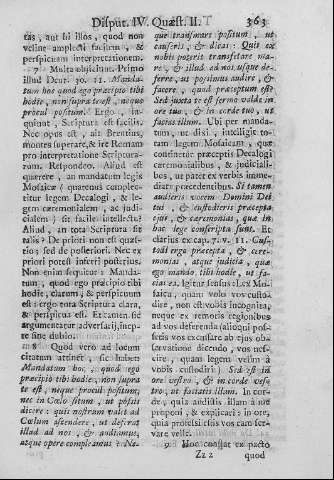 Disput. IV. Quæst. II.
363
tas, aut si illos, quod non
velint amplecti facilem, &
perspicuam interpretationem.
7 Multa objiciunt. Primo
illud Deut. 30. 11. Manda-
tum hoc quod ego præcipio tibi
hodie, non supra te est, neque
procul positum. Ergo, in-
quiunt, Scriptura est facilis.
Nec opus est, ait Brentius,
montes superare, & ire Romam
pro interpretatione Scriptura-
rum. Respondeo. Aliud est
quærere, an mandatum legis
Mosaicæ (quatenus comple-
titur legem Decalogi, & le-
gem cæremonialem, ac judi-
cialem) sit facile intellectu?
Aliud, an tota Scriptura sit
talis? De priori non est quæs-
tio; sed de posteriori. Nec ex
priori potest inferri posterius.
Non enim sequitur: Manda-
tum, quod ego præcipio tibi
hodie, clarum, & perspicuum
est: ergo tota Scriptura clara,
& perspicua est. Et tamen sic
argumentatur adversarii, inep-
te sine dubio.
8 Quod vero ad locum
citatum attinet, sic habet:
Mandatum hoc, quod ego
præcipio tibi hodie, non supra
te est, neque procul positum,
nec in Cœlo situm, ut possis
dicere: quis nostrum valet ad
Cœlum ascendere, ut deferat
illud ad nos, & audiamus,
atque opere compleamus? Ne-
que transmare positum, ut
causeris, & dicas: Quis ex
nobis poterit transfretare ma-
re, & illud ad nos usque de-
ferre, ut possimus audire, &
facere, quod præceptum est?
Sed juxta te est sermo valde in
ore tuo, & in corde tuo, ut
facias illum. Ubi per manda-
tum, ut dixi, intelligit to-
tam legem Mosaicam, quæ
continetur præceptis Decalogi
cæremonialibus, & judiciali-
bus, ut patet ex verbis imme-
diate præcedentibus. Si tamen
audieris vocem Domini Dei
tui, & custodieris præcepta
ejus, & cæremonias, quæ in
hac lege conscripta sunt. Et
clarius ex cap. 7. v. 11. Custo-
di ergo præcepta, & cære-
monias, atque judicia, quæ
ego mando tibi hodie, ut fa-
cias ea. Igitur sensus est. Lex Mo-
saica, quam volo vos custo-
dire, non est vobis incognita,
neque ex remotis regionibus
ad vos deferenda (alioqui pos-
setis vos excusare ab ejus ob-
servatione dicendo, vos nes-
cire, quam legem velim à
vobis custodiri) Sed est in
ore vestro, & in corde ves-
tro, ut faciatis illam. In cor-
de, quia audistis illam à me
proponi, & explicari: in ore,
quia professi estis vos eam ser-
vare velle.
9 Hoc constat ex pacto
Zz 2
quod